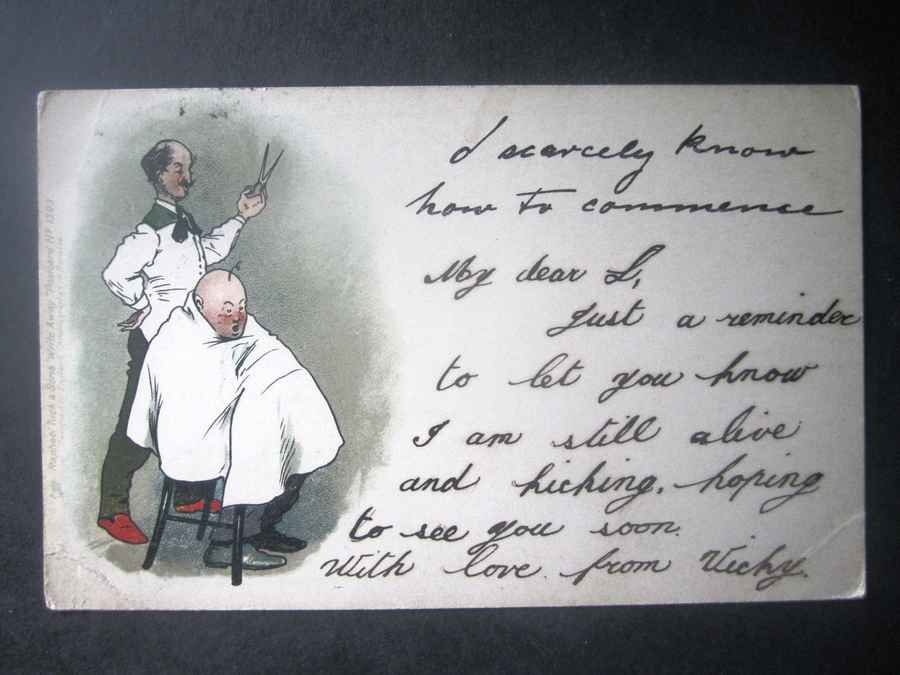 I scarcely know
how to commence
My dear L,
Just a reminder
to let you know
I am still alive
and kicking, hoping
to see you soon.
With love from Vicky.
Raphael Tuck & Sons "Write Away" Postcard Nº 1203